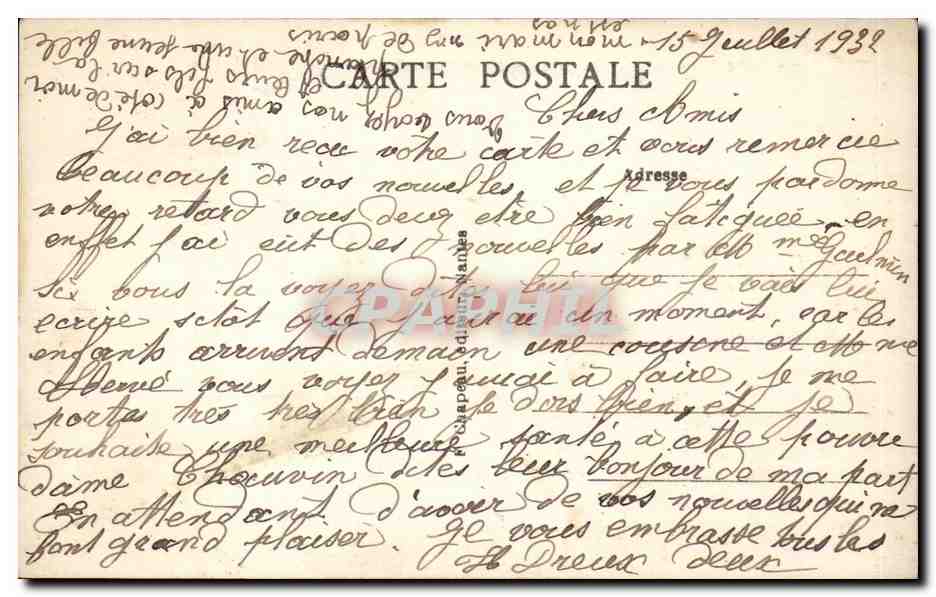 15 Juillet 1932
CARTE POSTALE
Chers Amis
J'ai bien recu vôtre carte et vous remercie
beaucoup de vos nouvelles, et je vous pardonne
Adresse
votre retard vous devez etre bien fatiguée, en
enffet j'ai eut des nouvelles par M me Gaulmin
si vous la voyez dites lui que je vais lui
ecrire sitôt que j'aurai un moment, car les
enfants arrivent demain une cousine et Mme
vous voyez j'aurai à faire, je me
portes très très bien je dors bien, et je
souhaite une meilleure santé à cette pouvre
dame Chauvin dites leur bonjour de ma part
En attendant d'avoir de vos nouvelles qui me
font grand plaiser. Je vous embrasse tous les
deux
H Dreux
Vous voyez nos amis à côté de moi
et leurs fils sur la
planche et une jeune fille
mon mari de
est
Chapeau, éditeur, Nantes
CPAPHIL